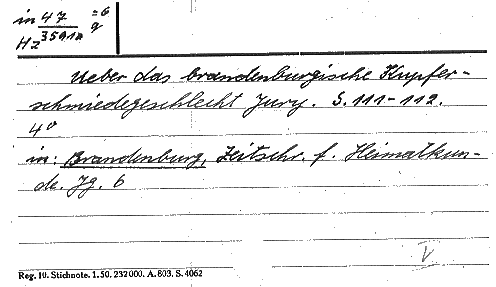 in 47 =6
Hz 35912 q
Ueber das brandenburgische Kupfer-
schmiedegeschlecht Jury. S. 111-112.
4°
in: Brandenburg, Zeitschr. f. Heimatkun-
de. Jg. 6
V
Reg. 10. Stichnote. 1. 50. 232000. A. 803. S. 4062